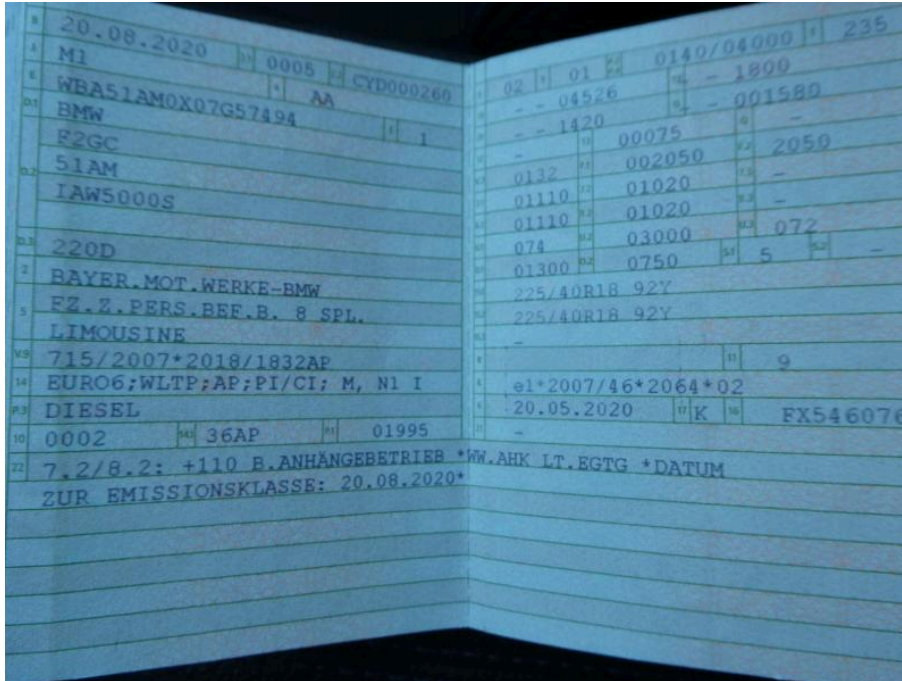 B 20.08.2020 2.1 0005 2.2 CYD000260
J M1 4 AA
E WBA51AM0X07G57494 3 1
D.1 BMW
F2GC
D.2 51AM
IAW5000S
D.3 220D
2 BAYER.MOT.WERKE-BMW
5 FZ.Z.PERS.BEF.B. 8 SPL.
LIMOUSINE
V.9 715/2007*2018/1832AP
14 EURO6;WLTP;AP;PI/CI; M, N1 I
P.3 DIESEL
10 0002 14.1 36AP P.1 01995
22 7.2/8.2: +110 B.ANHÄNGEBETRIEB *WW.AHK LT.EGTG *DATUM
ZUR EMISSIONSKLASSE: 20.08.2020*
02 9 01 P.2 P.4 0140/04000 T 235
- - 04526 - - 1800
- - 1420 - - 001580
- 00075 -
0132 F.1 002050 F.2 2050
01110 7.2 01020 -
01110 8.2 01020 -
074 U.2 03000 U.3 072
01300 O.2 0750 S.1 5 S.2 -
225/40R18 92Y
225/40R18 92Y
-
R 11 9
K e1*2007/46*2064*02
6 20.05.2020 17 K 16 FX546076
21 -